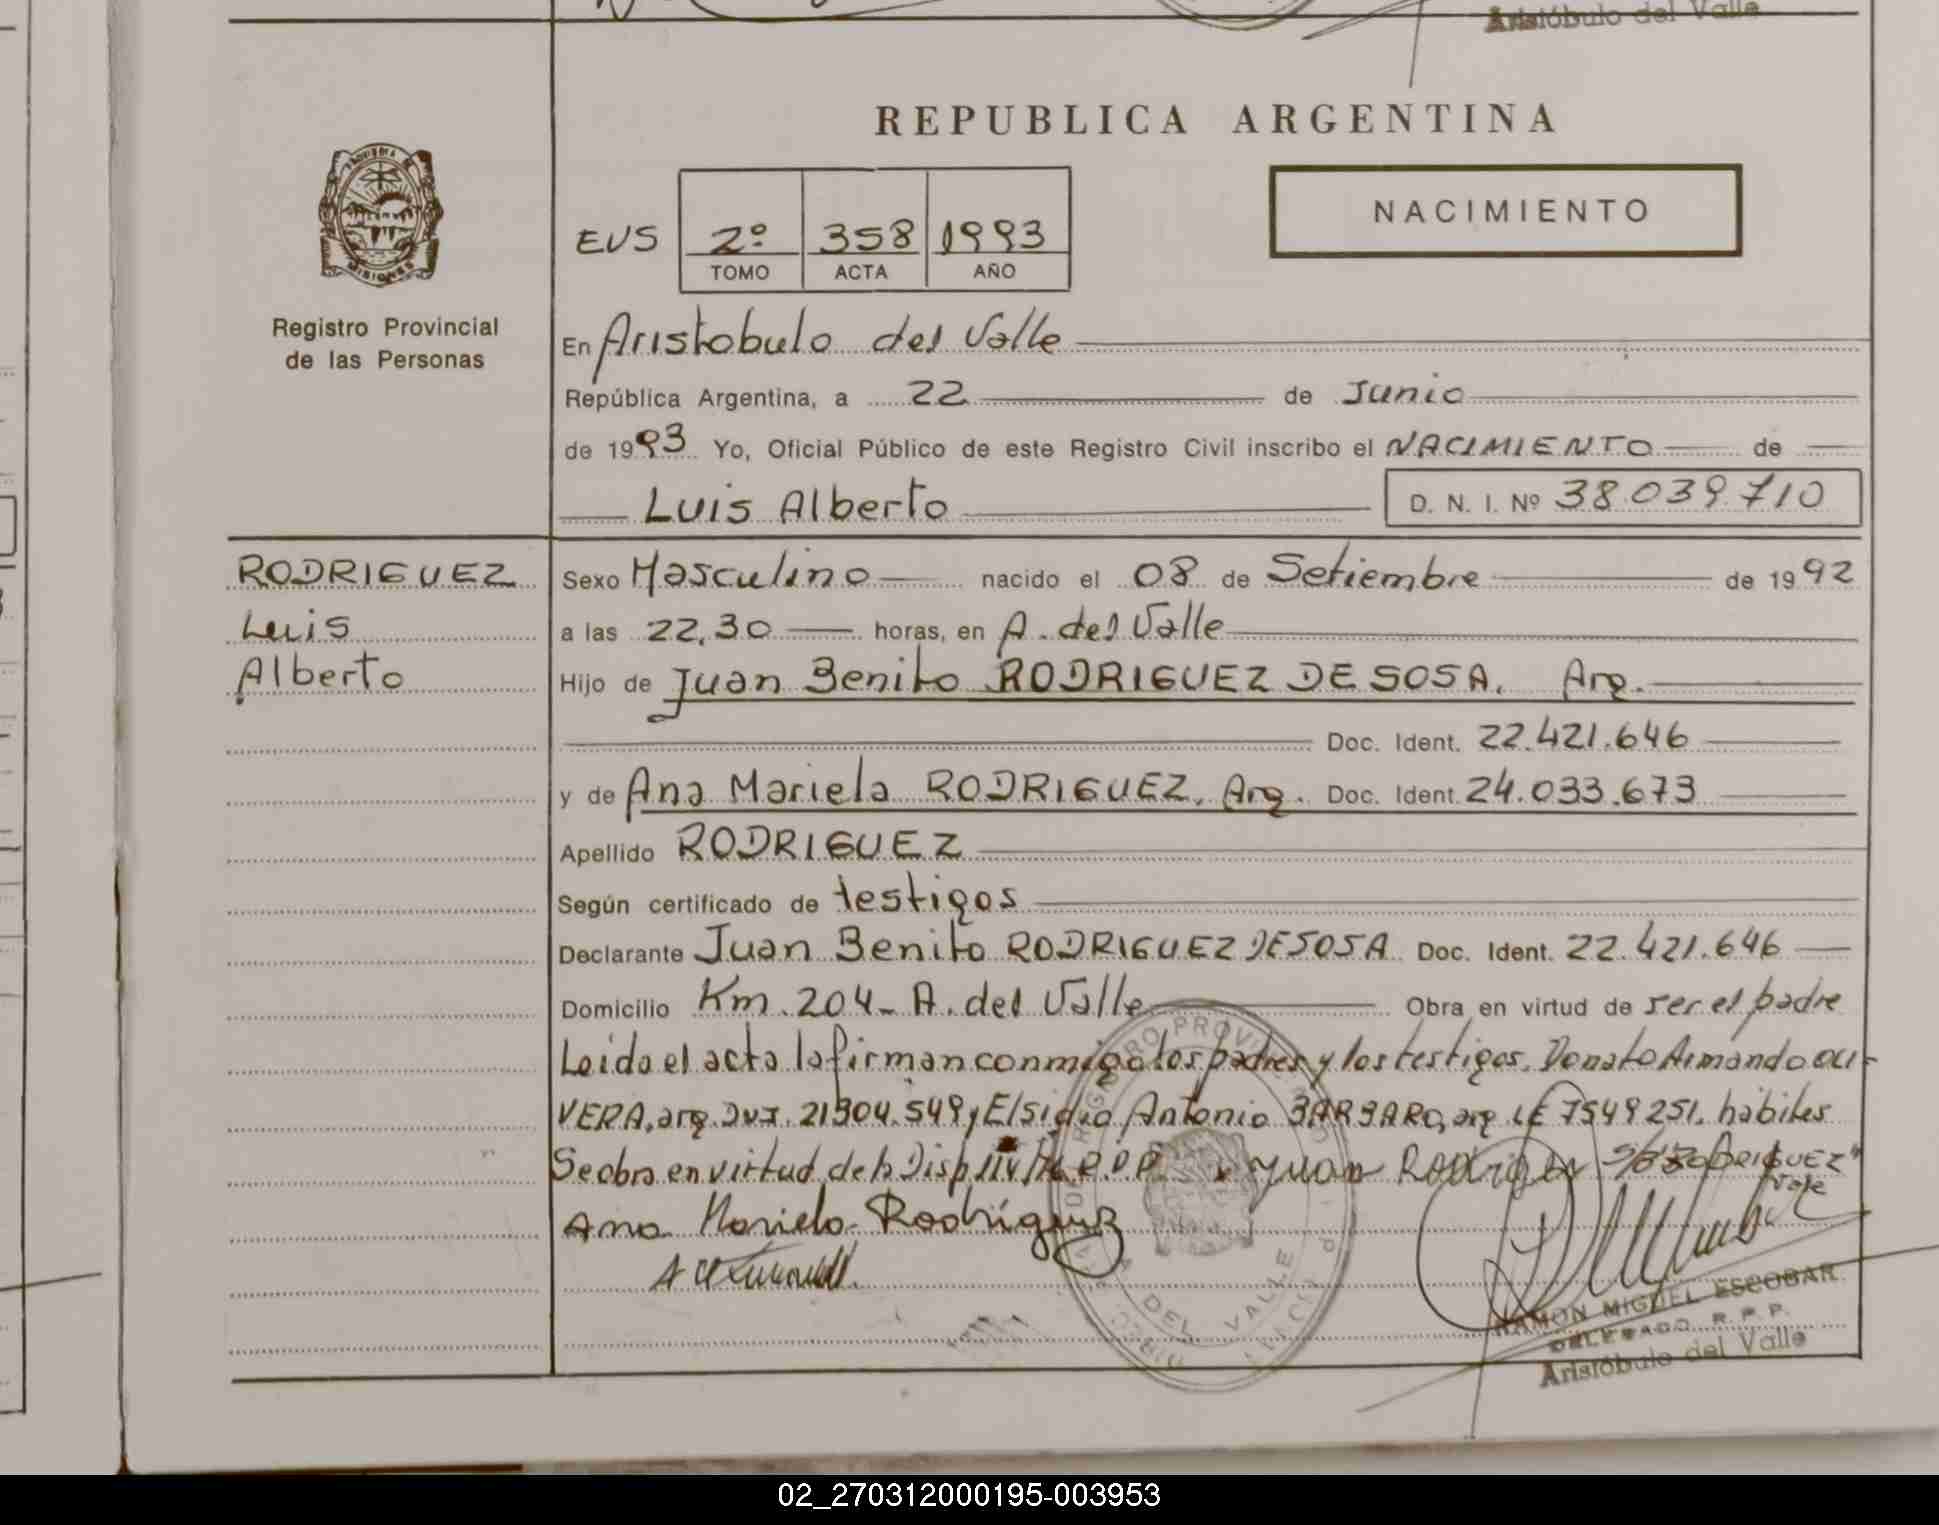 Aristóbulo del Valle
REPUBLICA ARGENTINA
NACIMIENTO
EUS 2º 358 1993
TOMO ACTA AÑO
PROVINCIA DE
MISIONES
Registro Provincial
de las Personas
En Aristobulo del Valle
República Argentina, a 22 de Junio
de 1993 Yo, Oficial Público de este Registro Civil inscribo el NACIMIENTO de
Luis Alberto D. N. I. Nº 38.039.710
RODRIGUEZ
Luis
Alberto
Sexo Masculino nacido el 08 de Setiembre de 1992
a las 22,30 horas, en A. del Valle
Hijo de Juan Benito RODRIGUEZ DE SOSA. Arg.
Doc. Ident. 22.421.646
y de Ana Mariela RODRIGUEZ, Arg. Doc. Ident. 24.033.673
Apellido RODRIGUEZ
Según certificado de testigos
Declarante Juan Benito RODRIGUEZ DE SOSA Doc. Ident. 22.421.646
Domicilio Km. 204- A. del Valle Obra en virtud de ser el padre
Leida el acta la firman conmigo los padres y los testigos, Donato Armando OLI-
VERA, arg. DNI. 21304.549 y Elsidio Antonio BARBARO, arg LE 7549251. habiles
Se obra en virtud de la Disp R.P.P. Juan Rodriguez S/B "RODRIGUEZ"
Vale
Ana Mariela Rodriguez
DEL VALLE
RAMON MIGUEL ESCOBAR
DELEGADO R. P. P.
Aristóbulo del Valle
02_270312000195-003953